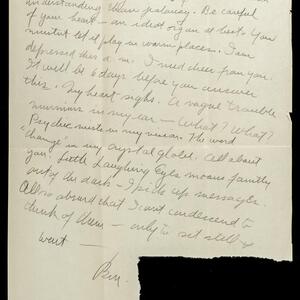 understanding their potency. Be careful
of your heart – an idiot organ at best. You
mustnt let it play in warm places. I am
depressed this a.m. I need cheer from you.
It will be 6 days before you answer
this. My heart sighs. A vague trouble
murmurs in my ear – What? What?
Psychic mists in my vision. The word
change in my crystal globe. All about
you. Little Laughing Eyes moans faintly
out of the dark – I pick up messages.
All so absurd that I can't condescend to
think of them – only to sit still &
wait –